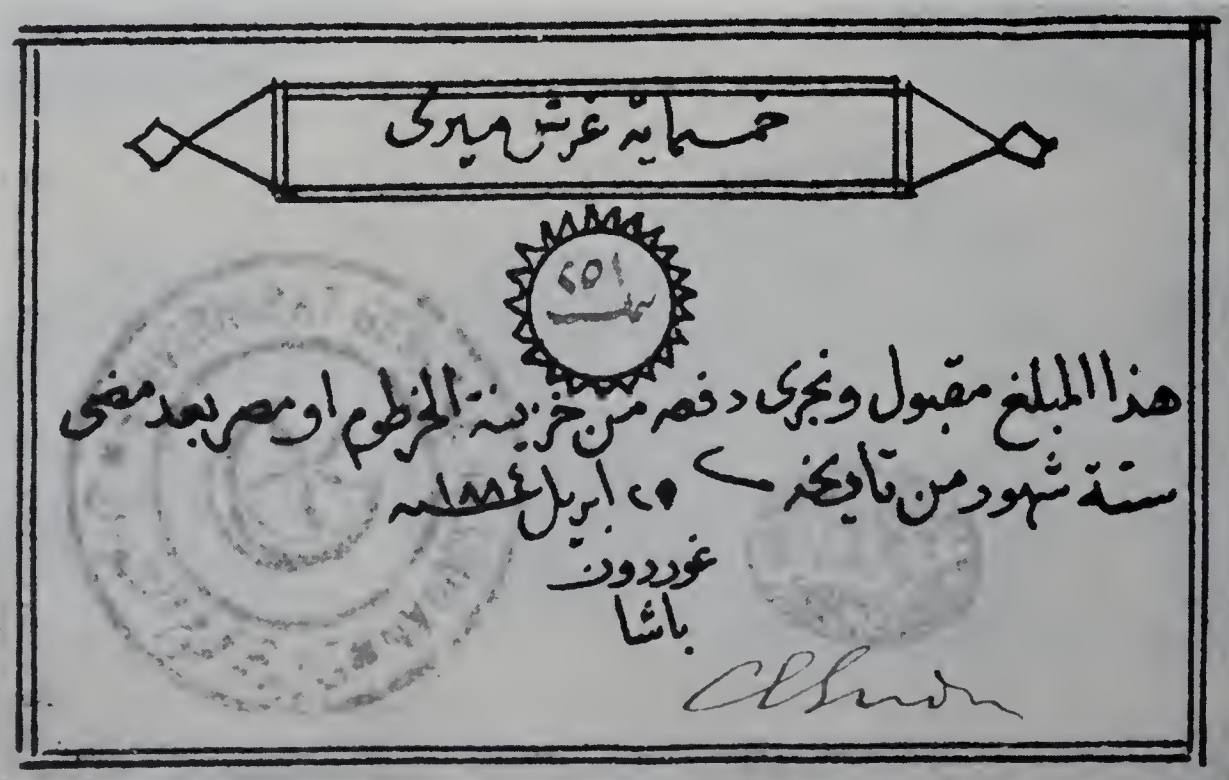 خمسماية غرش ميرى
٦٥١
نمرة
هذا المبلغ مقبول ونجرى دفعه من خزينة الخرطوم او مصر بعد مضى
ستة شهور من تاريخه ٢٥ ابريل سنة ١٨٨٤
غوردون
باشا